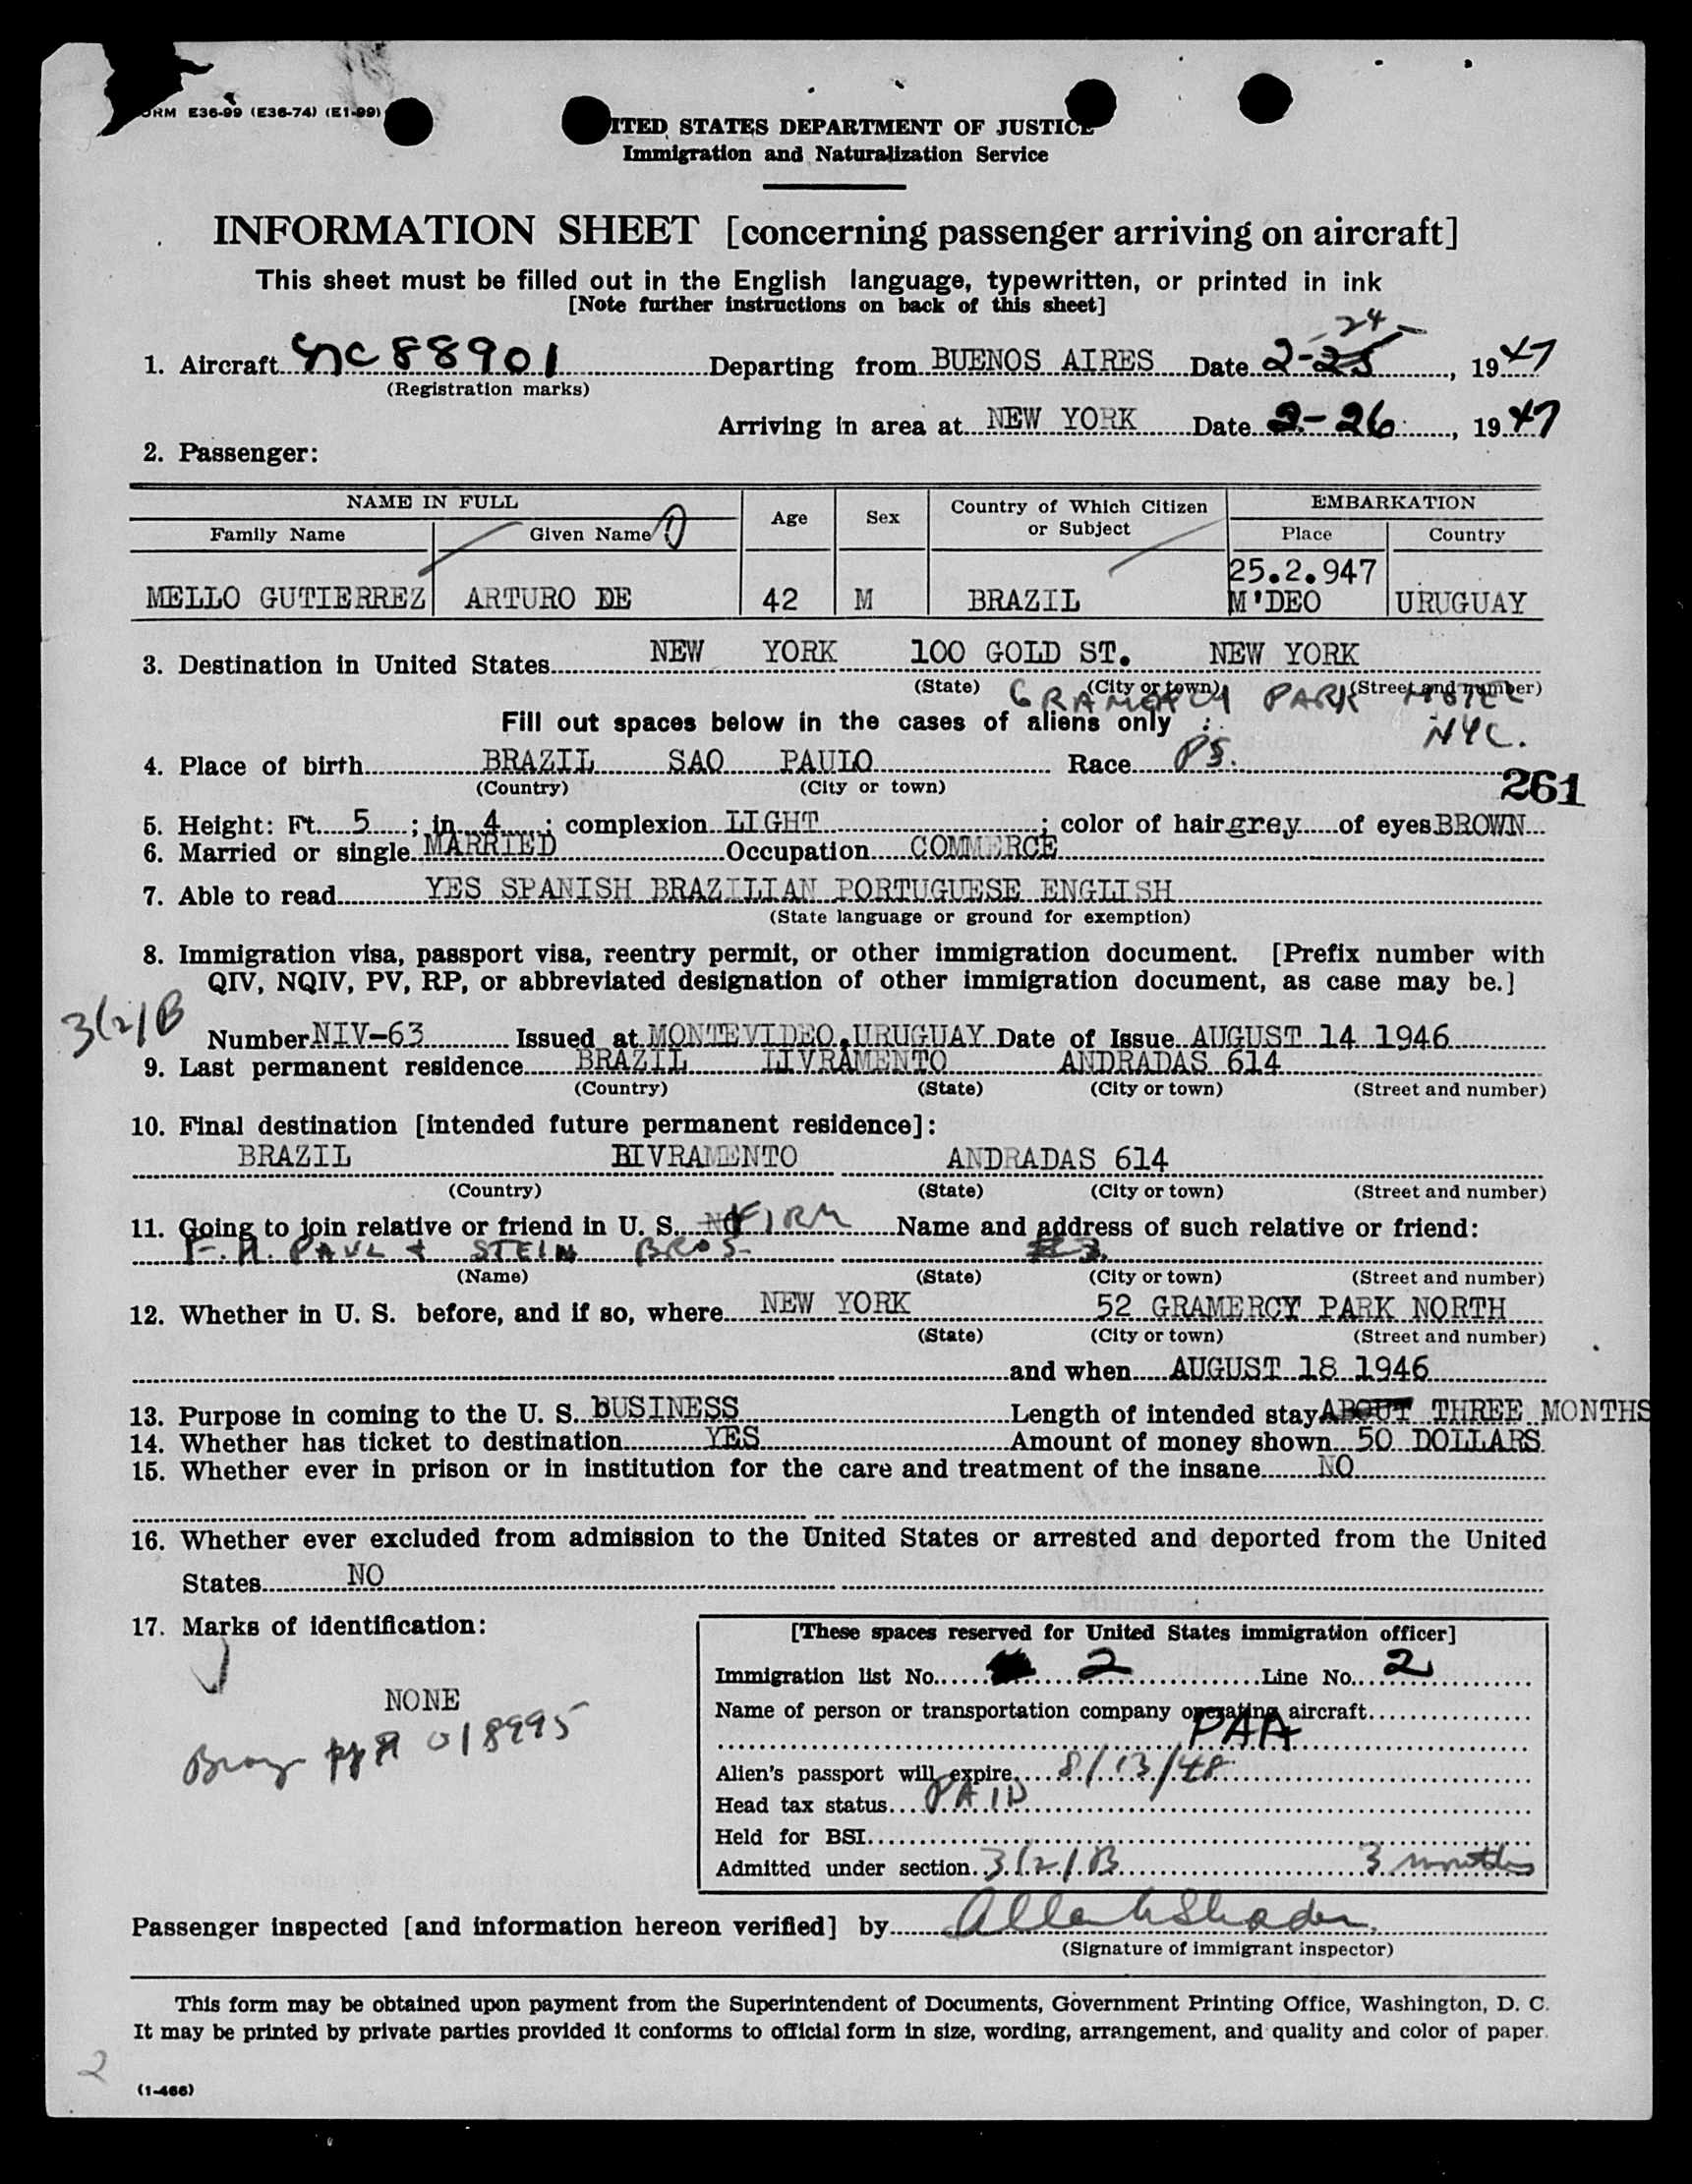 FORM E36-99 (E36-74) (E1-99)
UNITED STATES DEPARTMENT OF JUSTICE
Immigration and Naturalization Service
INFORMATION SHEET [concerning passenger arriving on aircraft]
This sheet must be filled out in the English language, typewritten, or printed in ink
[Note further instructions on back of this sheet]
-24-
1. Aircraft NC 88901 Departing from BUENOS AIRES Date 2-25, 1947
(Registration marks)
Arriving in area at NEW YORK Date 2-26, 1947
2. Passenger:
NAME IN FULL Age Sex Country of Which Citizen or Subject EMBARKATION
Family Name Given Name Place Country
25.2.947
MELLO GUTIERREZ ARTURO DE 42 M BRAZIL M'DEO URUGUAY
3. Destination in United States NEW YORK 100 GOLD ST. NEW YORK
(State) (City or town) (Street and number)
GRAMERCY PARK HOTEL
Fill out spaces below in the cases of aliens only :
NYC.
4. Place of birth BRAZIL SAO PAULO Race PS.
(Country) (City or town)
261
5. Height: Ft. 5; in. 4; complexion LIGHT; color of hair grey of eyes BROWN
6. Married or single MARRIED Occupation COMMERCE
7. Able to read YES SPANISH BRAZILIAN PORTUGUESE ENGLISH
(State language or ground for exemption)
8. Immigration visa, passport visa, reentry permit, or other immigration document. [Prefix number with
QIV, NQIV, PV, RP, or abbreviated designation of other immigration document, as case may be.]
3(2)B
Number NIV-63 Issued at MONTEVIDEO, URUGUAY Date of Issue AUGUST 14 1946
9. Last permanent residence BRAZIL LIVRAMENTO ANDRADAS 614
(Country) (State) (City or town) (Street and number)
10. Final destination [intended future permanent residence]:
BRAZIL LIVRAMENTO ANDRADAS 614
(Country) (State) (City or town) (Street and number)
11. Going to join relative or friend in U. S. NO FIRM Name and address of such relative or friend:
F.A. PAUL + STEIN BROS.
(Name) (State) (City or town) (Street and number)
12. Whether in U. S. before, and if so, where NEW YORK 52 GRAMERCY PARK NORTH
(State) (City or town) (Street and number)
and when AUGUST 18 1946
13. Purpose in coming to the U. S. BUSINESS Length of intended stay ABOUT THREE MONTHS
14. Whether has ticket to destination YES Amount of money shown 50 DOLLARS
15. Whether ever in prison or in institution for the care and treatment of the insane NO
16. Whether ever excluded from admission to the United States or arrested and deported from the United
States NO
17. Marks of identification:
NONE
018995
[These spaces reserved for United States immigration officer]
Immigration list No. 2 Line No. 2
Name of person or transportation company operating aircraft
PAA
Alien's passport will expire 8/13/48
Head tax status PAID
Held for BSI
Admitted under section 3(2)B 3 months
Passenger inspected [and information hereon verified] by
(Signature of immigrant inspector)
This form may be obtained upon payment from the Superintendent of Documents, Government Printing Office, Washington, D. C.
It may be printed by private parties provided it conforms to official form in size, wording, arrangement, and quality and color of paper.
2
(1-466)